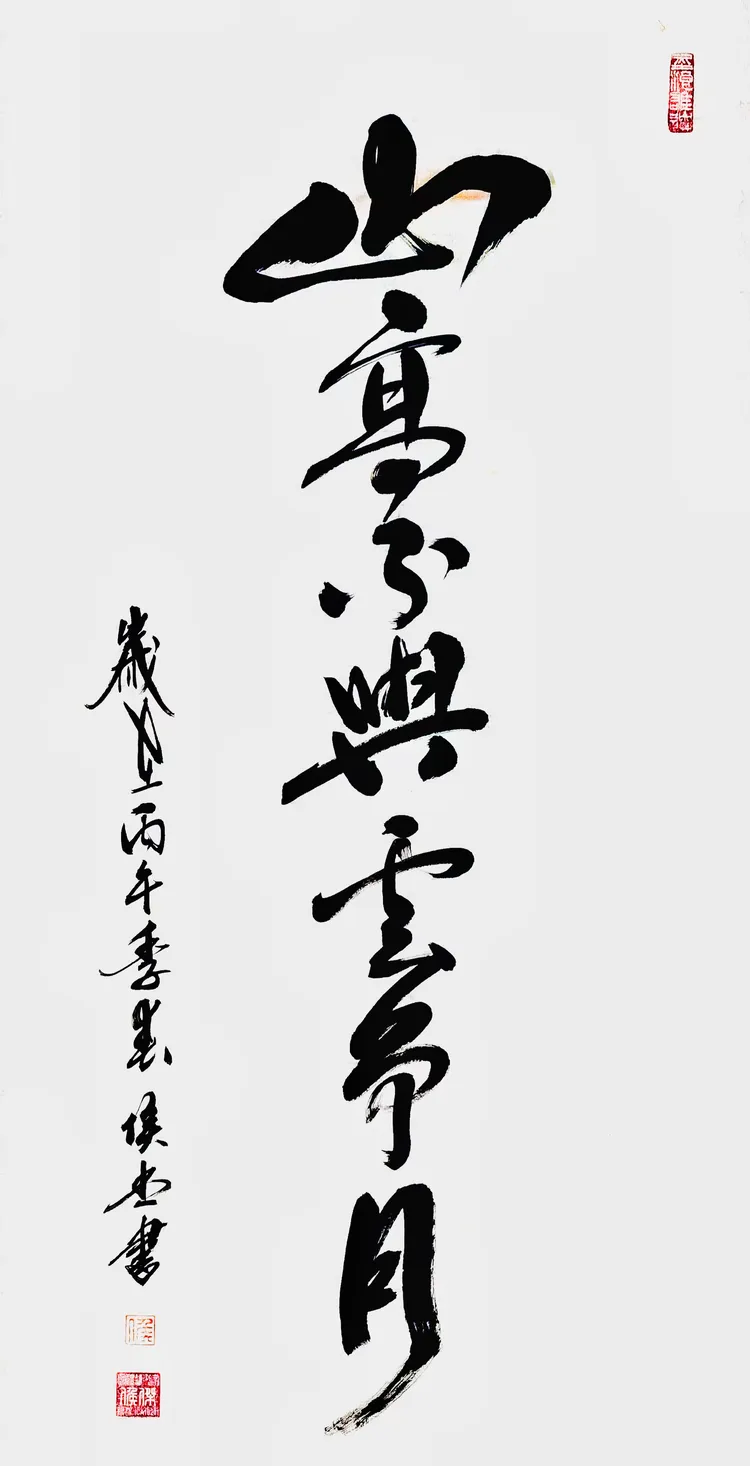 山高不與雲争月
歲在丙午季春侯杰書